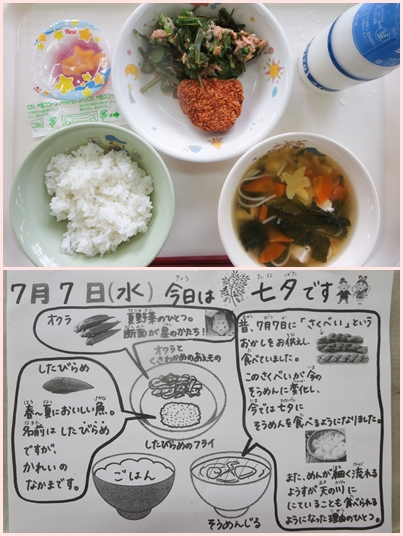 7月7日(水) 今日は 七夕です
オクラ
夏野菜のひとつ。
断面が星のかたち!
オクラと
くきわかめのあえもの
したびらめ
春〜夏においしい魚。
名前はしたびらめ
ですが、
かれいの
なかまです。
したびらめのフライ
ごはん
そうめんじる
昔、7月7日に「さくべい」という
おかしをお供えし、
食べていました。
このさくべいが今の
そうめんに変化し、
今では七夕に
そうめんを食べるようになりました。
また、めんが細く流れる
ようすが天の川に
にていることも食べられる
ようになった理由のひとつ。